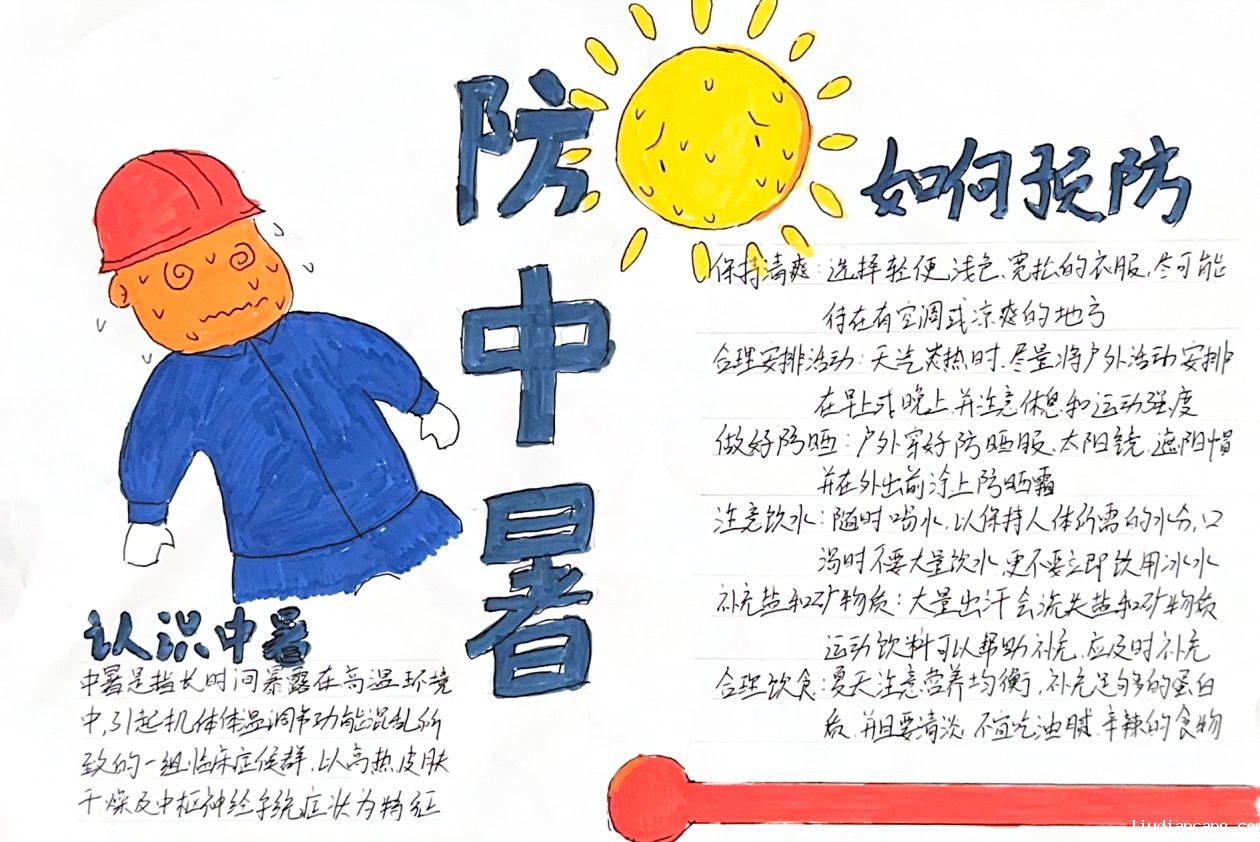 防中暑
认识中暑
中暑是指长时间暴露在高温环境
中,引起机体体温调节功能混乱所
致的一组临床症候群,以高热皮肤
干燥及中枢神经系统症状为特征
如何预防
保持清爽:选择轻便、浅色、宽松的衣服,尽可能
待在有空调或凉爽的地方
合理安排活动:天气炎热时,尽量将户外活动安排
在早上或晚上,并注意休息和运动强度
做好防晒:户外穿好防晒服、太阳镜、遮阳帽
并在外出前涂上防晒霜
注意饮水:随时喝水,以保持人体所需的水分,口
渴时不要大量饮水,更不要立即饮用冰水
补充盐和矿物质:大量出汗会流失盐和矿物质
运动饮料可以帮助补充,应及时补充
合理饮食:夏天注意营养均衡,补充足够多的蛋白
质,并且要清淡,不宜吃油腻、辛辣的食物
liudiancang.com